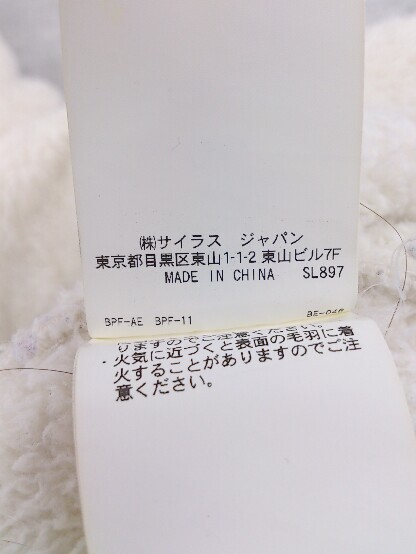 ㈱サイラス ジャパン
東京都目黒区東山1-1-2 東山ビル7F
MADE IN CHINA SL897
BPF-AE BPF-11
りますのでご注意ください。
・火気に近づくと表面の毛羽に着
火することがありますのでご注
意ください。